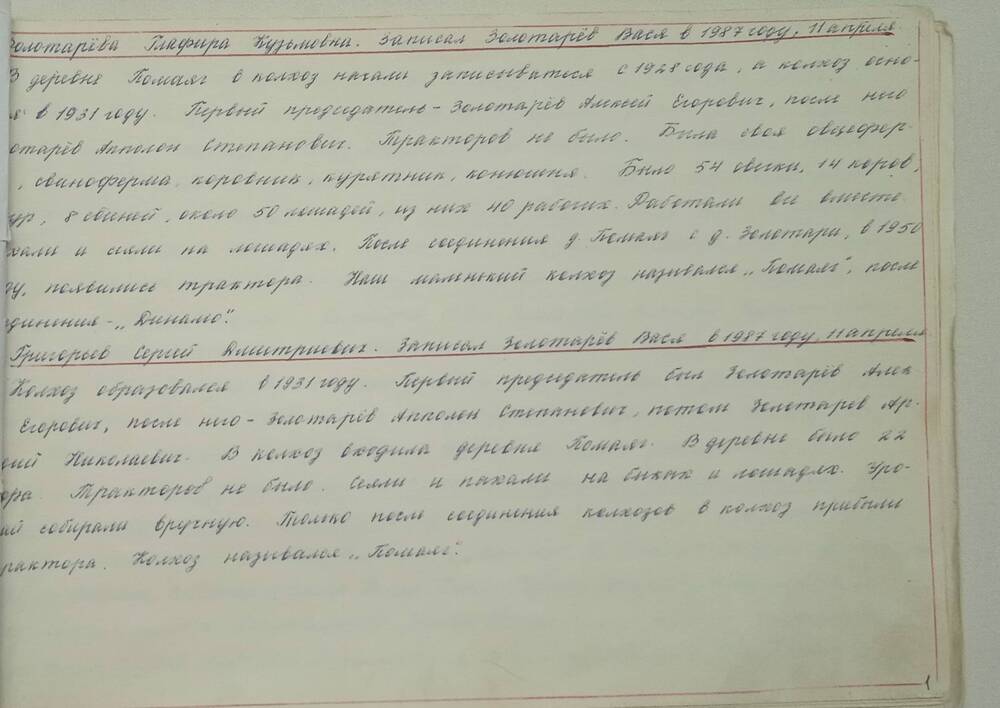 Золотарёва Глафира Кузьмовна. Записал Золотарёв Вася в 1987 году, 11 апреля.
В деревне Помаяг в колхоз начали записываться с 1928 года, а колхоз осно-
ся в 1931 году. Первый председатель - Золотарёв Алексей Егорович, после него
отарёв Апполон Степанович. Тракторов не было. Была своя овцефер-
, свиноферма, коровник, курятник, конюшня. Было 54 овцы, 14 коров,
ур, 8 свиней, около 50 лошадей, из них 40 рабочих. Работали все вместе.
хали и сеяли на лошадях. После соединения д. Помаяг с д. Золотари, в 1950
ду, появились трактора. Наш маленький колхоз назывался „Помаяг", после
единения - „Динамо".
Григорьев Сергей Дмитриевич. Записал Золотарёв Вася в 1987 году, 11 апреля
Колхоз образовался в 1931 году. Первый председатель был Золотарёв Алек
Егорович, после него - Золотарёв Апполон Степанович, потом Золотарев Ар-
ий Николаевич. В колхоз входила деревня Помаяг. В деревне было 22
ора. Тракторов не было. Сеяли и пахали на быках и лошадях. Уро-
ай собирали вручную. Только после соединения колхозов в колхоз прибыли
рактора. Колхоз назывался „Помаяг".
1